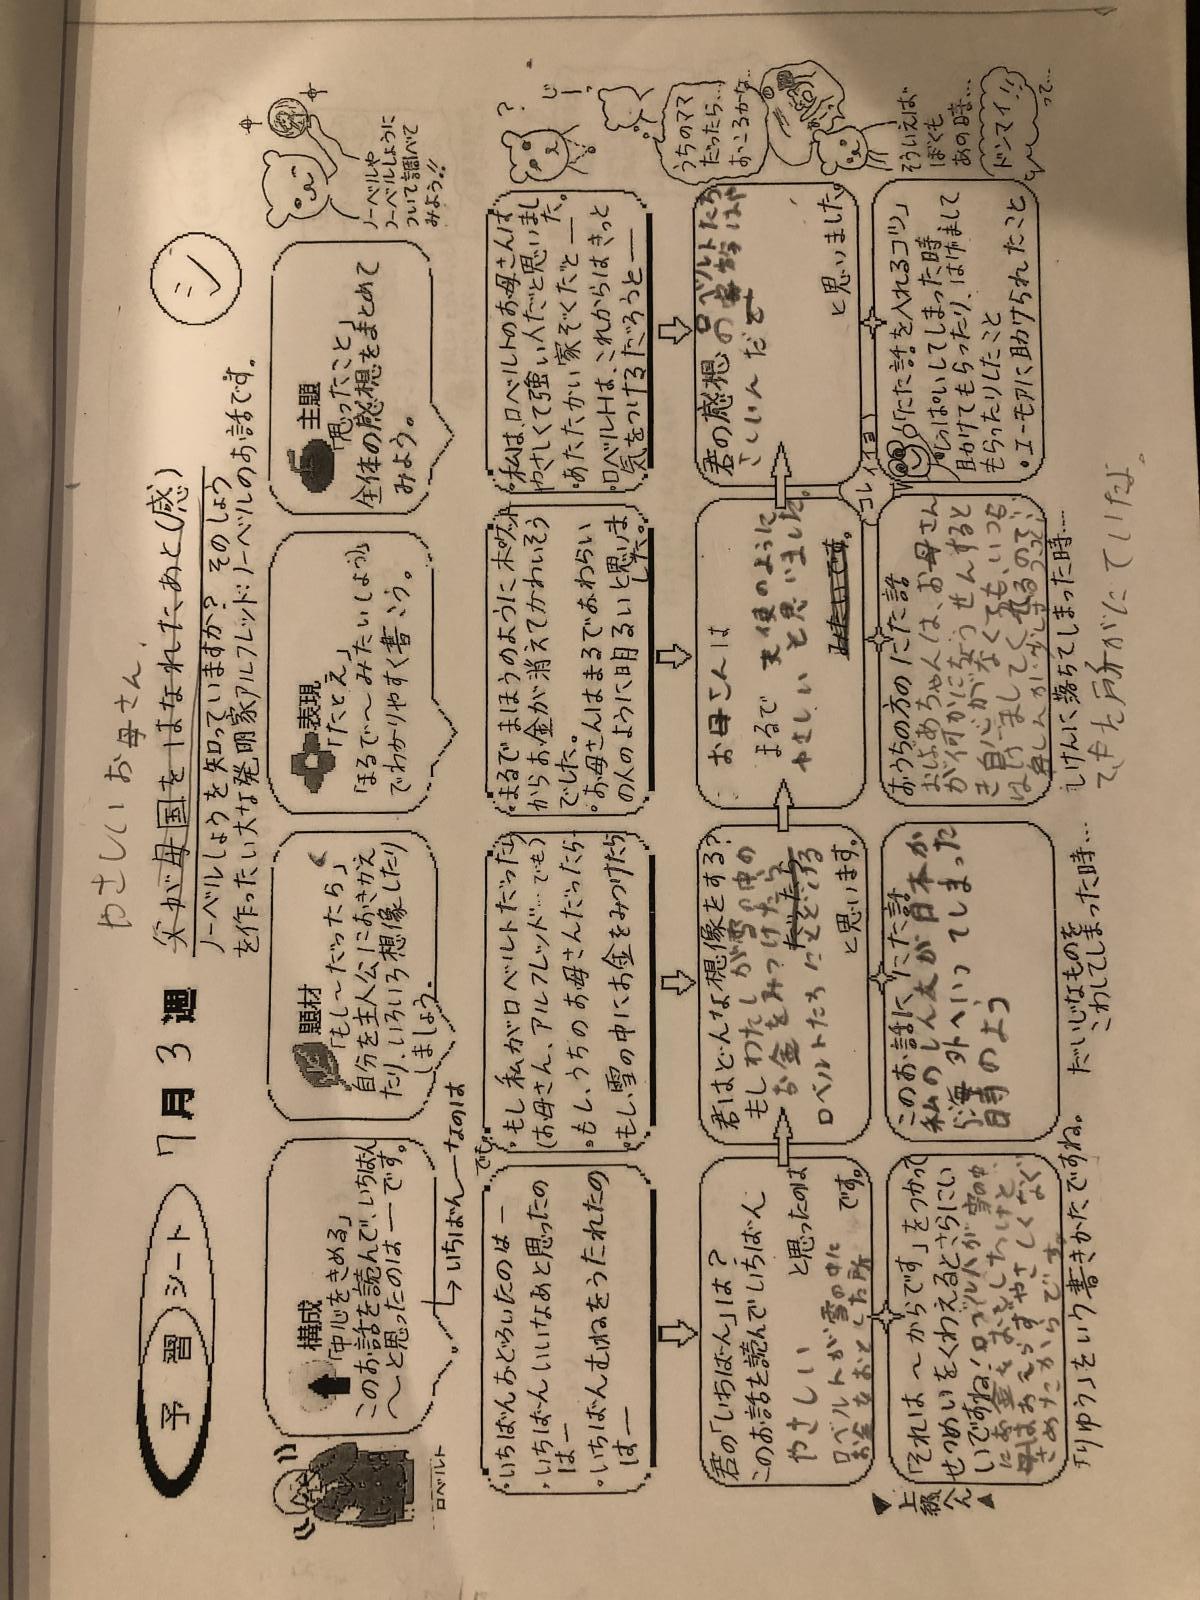 予習シート 7月3週
やさしいお母さん
父が母国をはなれたあと(感)
ノーベルしょうを知っていますか? そのしょう
を作ったい大な発明家アルフレッド・ノーベルのお話です。
シ
ロベルト
構成
「中心をきめる」
このお話を読んで、いちばん
〜と思ったのは―です。
→いちばん―なのは
題材
「もし〜だったら」
自分を主人公におきかえ
たり、いろいろ想像したり
しましょう。
表現
「たとえ」
「まるで〜みたい(しょう)」
でわかりやすく書こう。
主題
「思ったこと」
全体の感想をまとめて
みよう。
ノーベルや
ノーベルしょうに
ついて調べて
みよう!!
・いちばんおどろいたのは―
・いちばんいいなあと思ったの
は―
・いちばんむねをうたれたの
は―
でも
・もし私がロベルトだったら
(お母さん、アルフレッド…でも)
・もし、うちのお母さんだったら
・もし、雪の中にお金をみつけたら
・まるでまほうのようにポケット
からお金が消えてかわいそう
でした。
・お母さんはまるでおわらい
の人のように明るいと思いま
した。
・私は、ロベルトのお母さんは
やさしくて強い人だと思いまし
た。
・あたたかい家ぞくだと―
・ロベルトは、これからはきっと
気をつけるだろうと―
?
じーっ
君の「いちばん」は?
このお話を読んでいちばん
やさしい と思ったのは
ロベルトが雪の中に
お金をおとした所 です。
君はどんな想像をする?
もしわたしが雪の中の
お金をみつけたら
ロベルトたちにとどける
と思います。
お母さんは
まるで 天使のように
やさしい と思いました。
みたいです。
君の感想 ロベルトたち
の家族は
だと
と思いました。
うちのママ
だったら…
おこるかな…
▼上級へん▲
「それは〜からです」をつかって
せつめいをくわえるとさらにい
いですね! ロベルトが雪の中
にお金をおとしたけど
母はおこらずやさしくなぐ
さめたからです。
「りゆう」をいう書きかたですね。
このお話ににた話
私のしん友が日本か
ら海外へいってしまった
時のよう
だいじなものを
こわしてしまった時…
おうちの方のにた話
おばあちゃんは、お母さん
が何かにちょうせんすると
き自しんがなくても、いつも
はげましてくれるので
しけんに落ちてしまった時……
にた所がにていたよ。
コレイイヨ
「にた話を入れるコツ」
・しっぱいしてしまった時
助けてもらったり、はげまして
もらったりしたこと
・ユーモアに助けられたこと
そういえば
ぼくも
あの時…
ドンマイ!!
って…